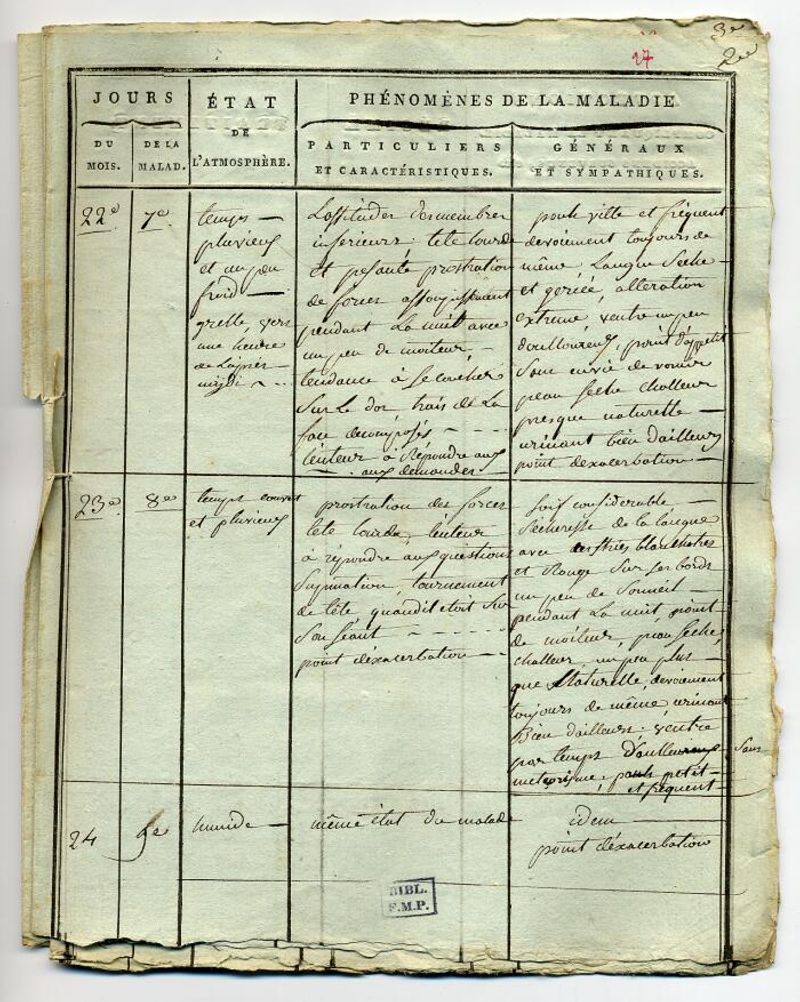 3e
27
2ee
JOURS
DU
MOIS.
DE LA
MALAD.
ÉTAT
DE
L'ATMOSPHÈRE.
PHÉNOMÈNES DE LA MALADIE
PARTICULIERS
ET CARACTÉRISTIQUES.
GÉNÉRAUX
ET SYMPATHIQUES.
22e
7e
temps —
pluvieux
et un peu
froid —
grelle, vers
une heure
de l'apres
midi
Lassitudes des membres
inferieurs; tete lourde
et pesante prostration
de forces assoupissement
pendant la nuit avec
un peu de moiteur,
tendance à se coucher
sur le dos, trais de la
face decomposés
lenteur à répondre aux
aux demandes
pouls vitte et fréquent
devoiement toujours de
même, Langue seche
et gercée, alteration
extreme, ventre un peu
doulloureux, point d'appetit
sans envie de vomir
peau seche challeur
presque naturelle —
urinant bien d'ailleurs
point dexacerbation —
23e
8e
temps couvert
et pluvieux
prostration des forces
tête lourde, lenteur
à répondre aux questions
tournement
de tête, quand il etoit sur
son séant
point déxacerbation —
soif considerable —
sécheresse de la langue
avec des stries blanchatres
et rouge sur ses bords
un peu de sommeil —
pendant la nuit, point
de moiteur, peau seche,
challeur un peu plus —
que naturelle, devoiement
toujours de même, urinant
bien d'ailleurs; ventre
par temps sans
meteorisme, pouls petit
et fréquent
24
9e
humide —
même état du malade
idem
point déxacerbation
BIBL.
F.M.P.